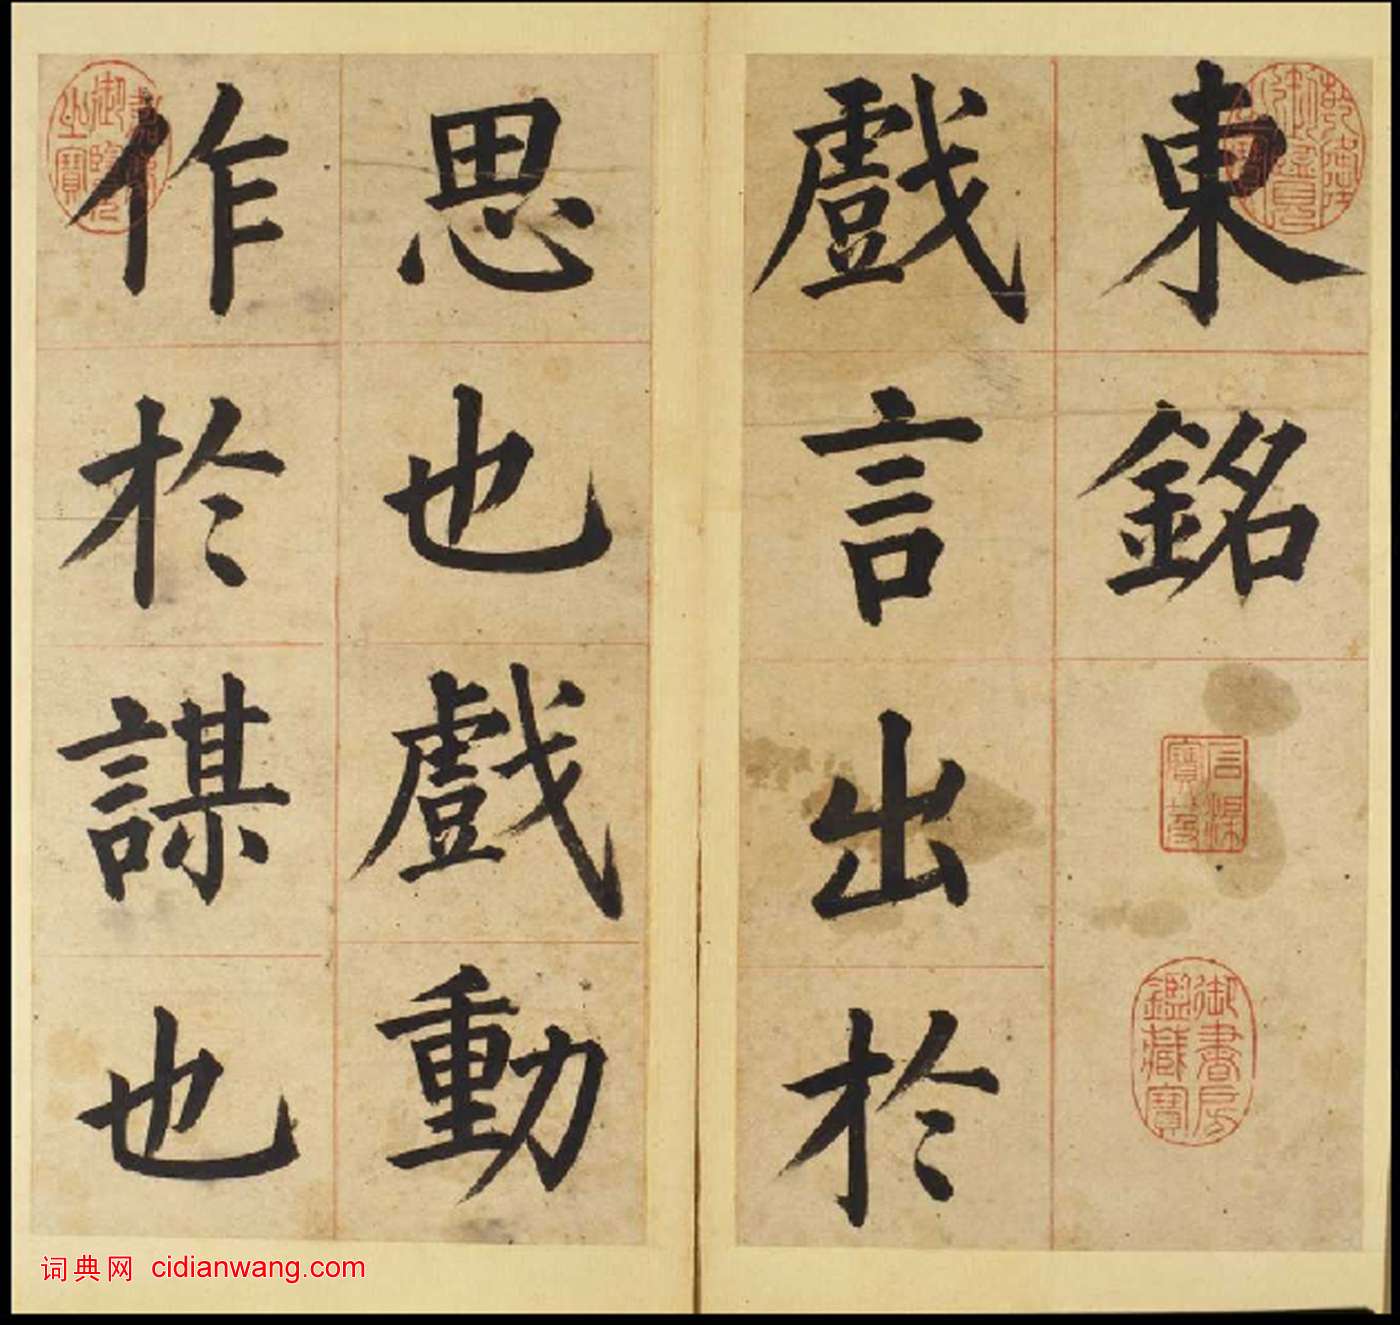 東銘
戲言出於
思也戲動
作於謀也
乾隆御覽之寶
御書房鑑藏寶
嘉慶御覽之寶
词典网 cidianwang.com